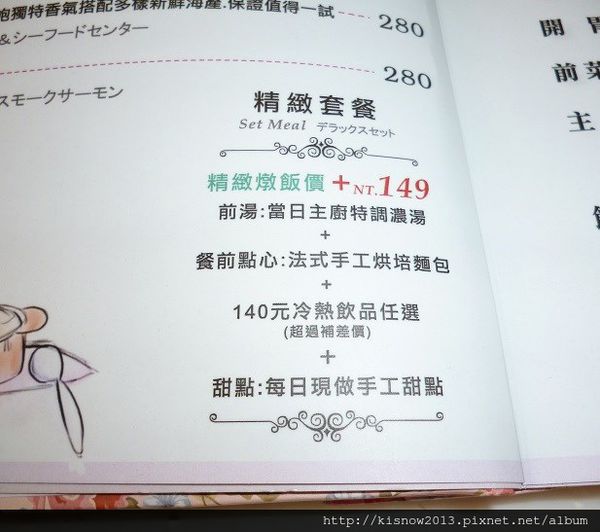 飽獨特香氣搭配多樣新鮮海產.保證值得一試
280
&シーフードセンター
280
スモークサーモン
精緻套餐
Set Meal デラックスセット
精緻燉飯價 +NT.149
前湯:當日主廚特調濃湯
+
餐前點心:法式手工烘培麵包
+
140元冷熱飲品任選
(超過補差價)
+
甜點:每日現做手工甜點
開 胃
前菜
主
http://kisnow2013.pixnet.net/album